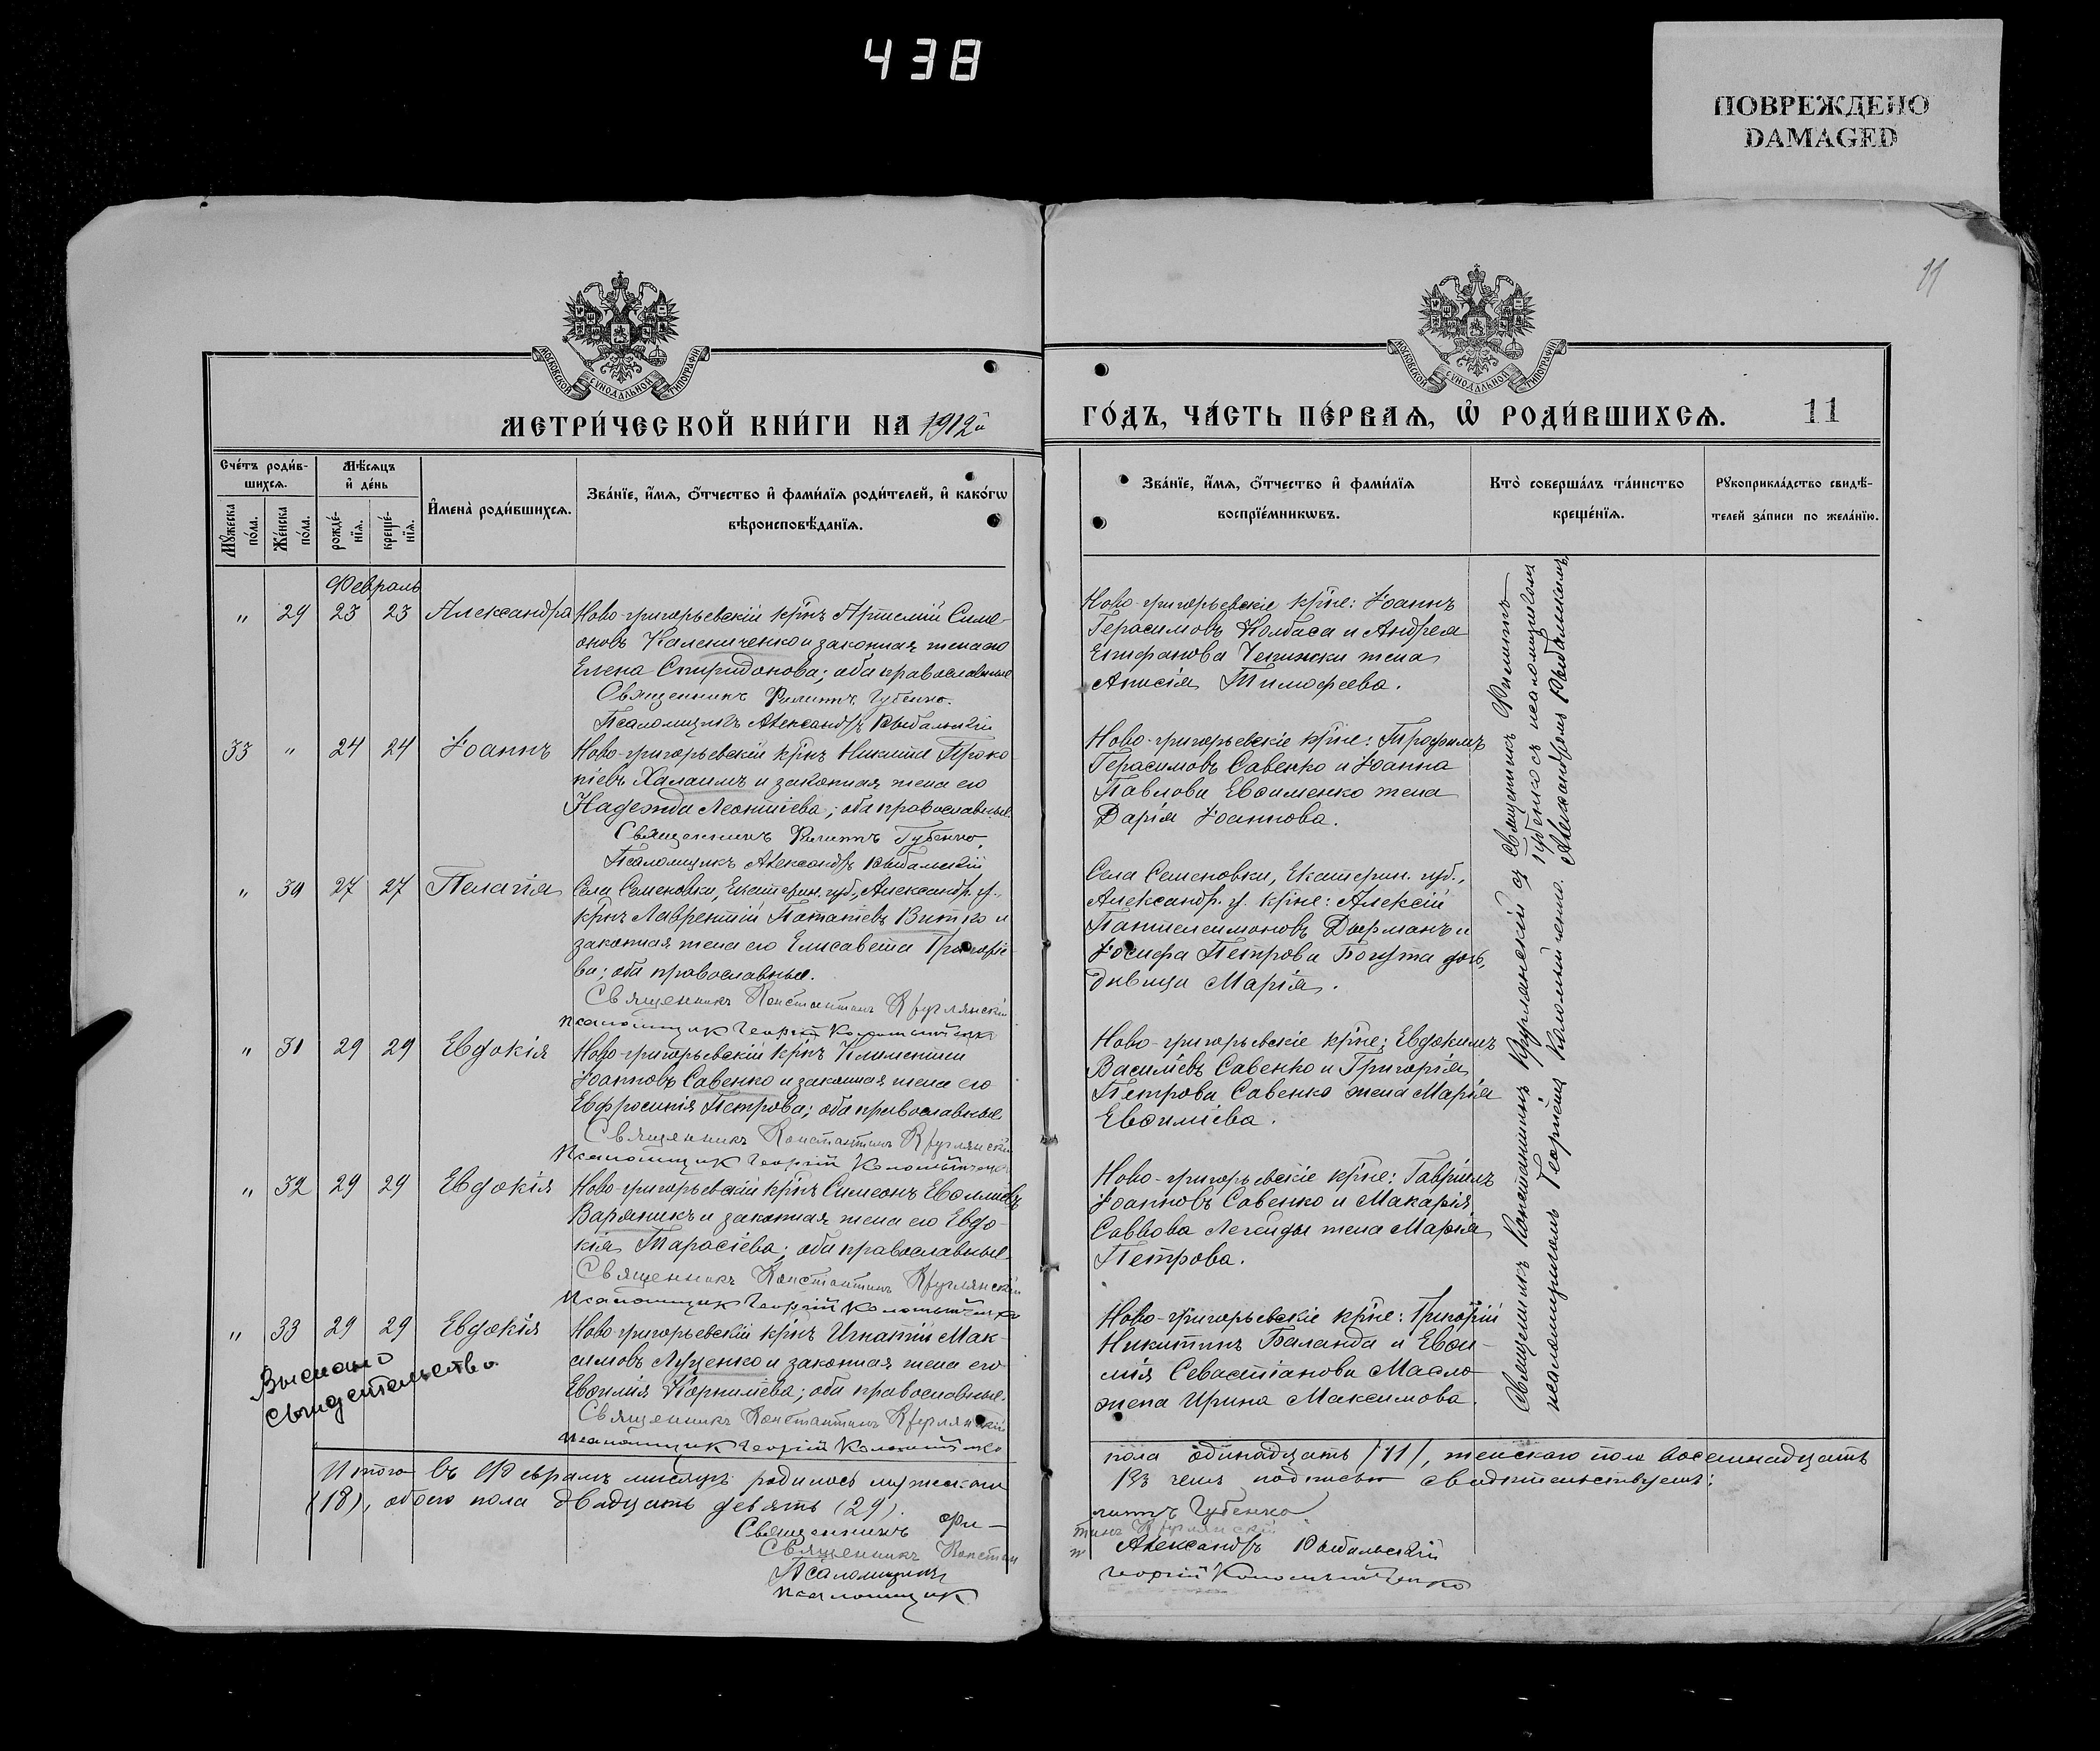 438
ПОВРЕЖДЕНО
DAMAGED
11
МОСКОВСКОЙ СѴНОДАЛЬНОЙ ТИПОГРАФІИ
МОСКОВСКОЙ СѴНОДАЛЬНОЙ ТИПОГРАФІИ
МЕТРИ́ЧЕСКОЙ КНИ́ГИ НА 1912й
ГО́ДЪ, ЧА́СТЬ ПЕ́РВАѦ, Ѡ҆ РОДИ́ВШИХСѦ. 11
Сче́тъ роди́в-
шихсѧ.
Мꙋ́жеска по́ла.
Же́нска по́ла.
Мѣ́сѧцъ
и҆ де́нь
рожде́-
нїѧ.
креще́-
нїѧ.
И҆мена̀ роди́вшихсѧ.
Зва́нїе, и҆́мѧ, ѻ҆́тчество и҆ фами́лїѧ роди́телей, и҆ како́гѡ
вѣроисповѣ́данїѧ.
Зва́нїе, и҆́мѧ, ѻ҆́тчество и҆ фами́лїѧ
воспрїе́мникѡвъ.
Кто̀ соверша́лъ та́инство
креще́нїѧ.
Рꙋкоприкла́дство свидѣ́-
телей за́писи по жела́нїю.
Февраль
" 29 23 23 Александра
Ново-григорьевскій крнъ Артемій Симе-
оновъ Калениченко и законная жена его
Елена Спиридонова; оба православные
Священникъ Филиппъ Губенко.
Псаломщикъ Александръ Рыбальскій
Ново-григорьевскіе крне: Іоаннъ
Герасимовъ Колбаса и Андрея
Епифанова жена
Анисія Тимофеева.
33 " 24 24 Іоаннъ
Ново-григорьевскій крнъ Никита Проко
піевъ Халаимъ и законная жена его
Надежда Леонтіева; оба православные.
Священникъ Филиппъ Губенко.
Псаломщикъ Александръ Рыбальскій
Ново-григорьевскіе крне: Трофимъ
Герасимовъ Савенко и Іоанна
Павлова Евѳименко жена
Дарія Іоаннова.
" 30 27 27 Пелагія
Села Семеновки, Екатерин. губ., Александр. у.
крнъ Лаврентій Потапіевъ Витко и
законная жена его Елисавета Григоріе-
ва; оба православные.
Священникъ Константинъ Круглянскій
псаломщик Георгій Коломійченко
Села Семеновки, Екатерин. губ.,
Александр. у. крне: Алексій
Пантелеимоновъ Дцерманъ и
Іосифа Петрова дочь,
дѣвица Марія.
" 31 29 29 Евдокія
Ново-григорьевскій крнъ Климентій
Іоанновъ Савенко и законная жена его
Евфросинія Петрова; оба православные
Священникъ Константинъ Круглянскій
псаломщик Георгій Коломійченко
Ново-григорьевскіе крне: Евдокимъ
Василіевъ Савенко и Григорія
Петрова Савенко жена Марія
Евѳиміева.
" 32 29 29 Евдокія
Ново-григорьевскій крнъ Симеонъ Евѳиміевъ
Вареникъ и законная жена его Евдо-
кія Тарасіева; оба православные
Священникъ Константинъ Круглянскій
псаломщик Георгій Коломійченко
Ново-григорьевскіе крне: Гавріилъ
Іоанновъ Савенко и Макарія
Саввова Легейды жена Марія
Петрова.
" 33 29 29 Евдокія
Выслано
свидетельство
Ново-григорьевскій крнъ Игнатій Мак-
симовъ Луценко и законная жена его
Евѳимія Корниліева; оба православные.
Священникъ Константинъ Круглянскій
псаломщик Георгій Коломійченко
Ново-григорьевскіе крне: Григорій
Никитинъ Баланда и Евѳи-
мія Севастіанова Масло
жена Ирина Максимова.
Священникъ Константинъ Круглянскій и священникъ Филиппъ
Губенко съ псаломщикомъ
псаломщикомъ Георгіемъ Коломійченко. Александромъ Рыбальскимъ
Итого въ Февралѣ мѣсяцѣ родилось мужескаго пола одинадцать /11/, женскаго пола восемнадцать
(18), обоего пола двадцать девять (29). въ чемъ подписью свидѣтельствуемъ:
Священникъ Филиппъ Губенко
Священникъ Константинъ Круглянскій
Псаломщикъ Александръ Рыбальскій
псаломщик Георгій Коломійченко